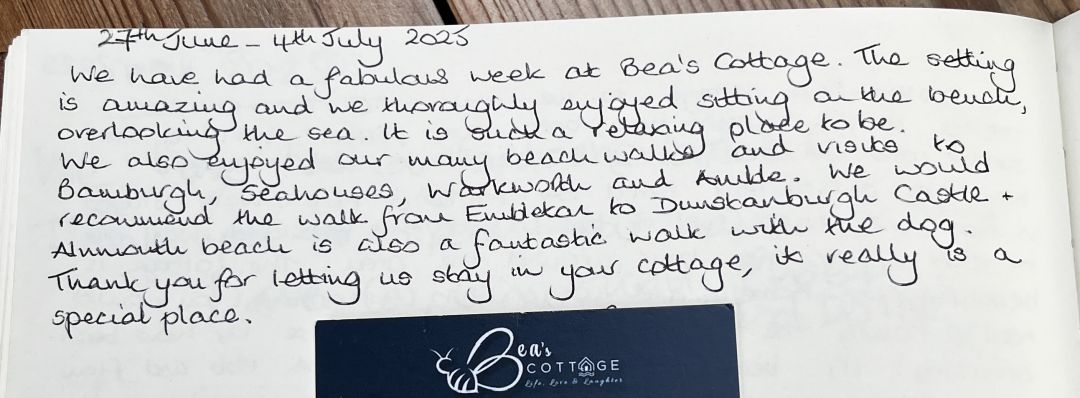 27th June - 4th July 2025
We have had a fabulous week at Bea's Cottage. The setting
is amazing and we thoroughly enjoyed sitting on the bench,
overlooking the sea. It is such a relaxing place to be.
We also enjoyed our many beach walks and visits to
Bamburgh, Seahouses, Warkworth and Amble. We would
recommend the walk from Embleton to Dunstanburgh Castle +
Alnmouth beach is also a fantastic walk with the dog.
Thank you for letting us stay in your cottage, it really is a
special place.
Bea's
COTTAGE
Life, Love & Laughter